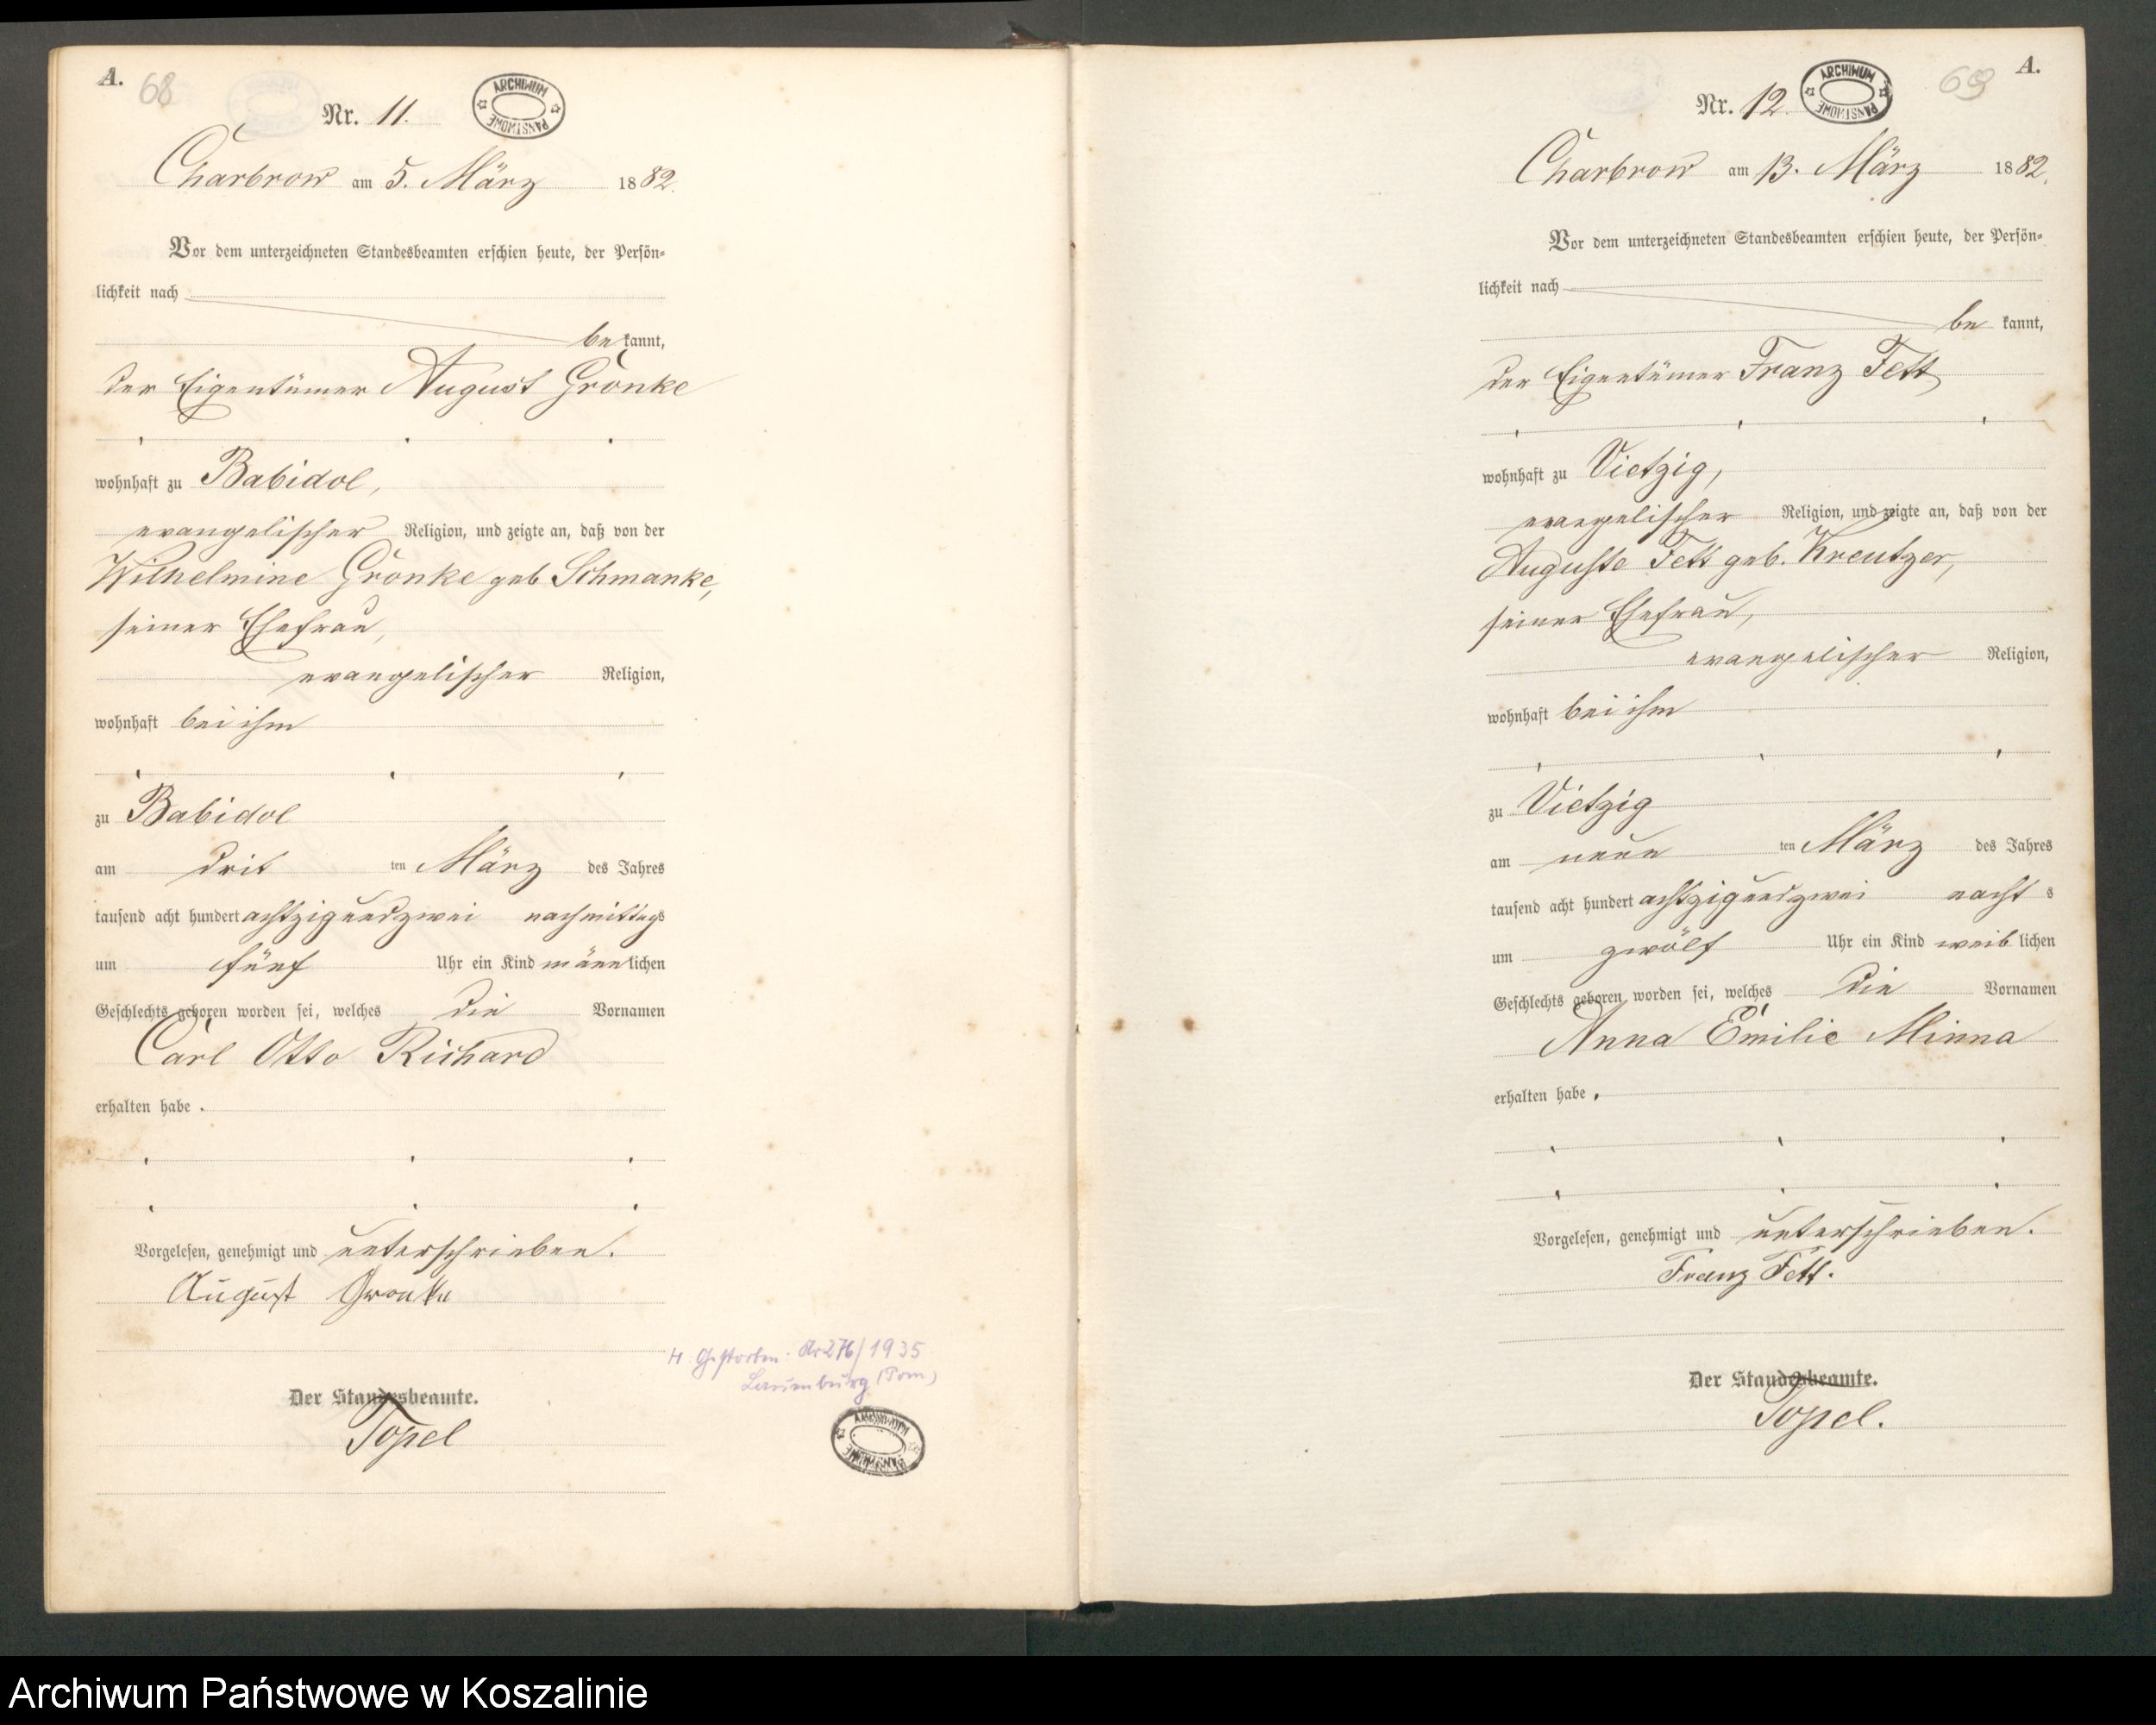 A. 68
ARCHIWUM PAŃSTWOWE
Nr. 11.
Charbrow am 5. März 1882.
Vor dem unterzeichneten Standesbeamten erschien heute, der Persön-
lichkeit nach
be kannt,
der Eigentümer August Gronke
wohnhaft zu Babidol,
evangelischer Religion, und zeigte an, daß von der
Wilhelmine Gronke geb. Schmanke,
seiner Ehefrau,
evangelischer Religion,
wohnhaft bei ihm
zu Babidol
am drit ten März des Jahres
tausend acht hundert achtzigundzwei nachmittags
um fünf Uhr ein Kind männlichen
Geschlechts geboren worden sei, welches die Vornamen
Carl Otto Richard
erhalten habe.
Vorgelesen, genehmigt und unterschrieben.
August Gronke
H. Gestorben. Nr 276/1935
Lauenburg (Pom)
Der Standesbeamte.
Topel
ARCHIWUM PAŃSTWOWE
69 A.
ARCHIWUM PAŃSTWOWE
Nr. 12.
Charbrow am 13. März 1882.
Vor dem unterzeichneten Standesbeamten erschien heute, der Persön-
lichkeit nach
be kannt,
der Eigentümer Franz Fett
wohnhaft zu Vietzig,
evangelischer Religion, und zeigte an, daß von der
Auguste Fett geb. Kreutzer,
seiner Ehefrau,
evangelischer Religion,
wohnhaft bei ihm
zu Vietzig
am neun ten März des Jahres
tausend acht hundert achtzigundzwei nachts
um zwölf Uhr ein Kind weiblichen
Geschlechts geboren worden sei, welches die Vornamen
Anna Emilie Minna
erhalten habe.
Vorgelesen, genehmigt und unterschrieben.
Franz Fett.
Der Standesbeamte.
Topel.
Archiwum Państwowe w Koszalinie